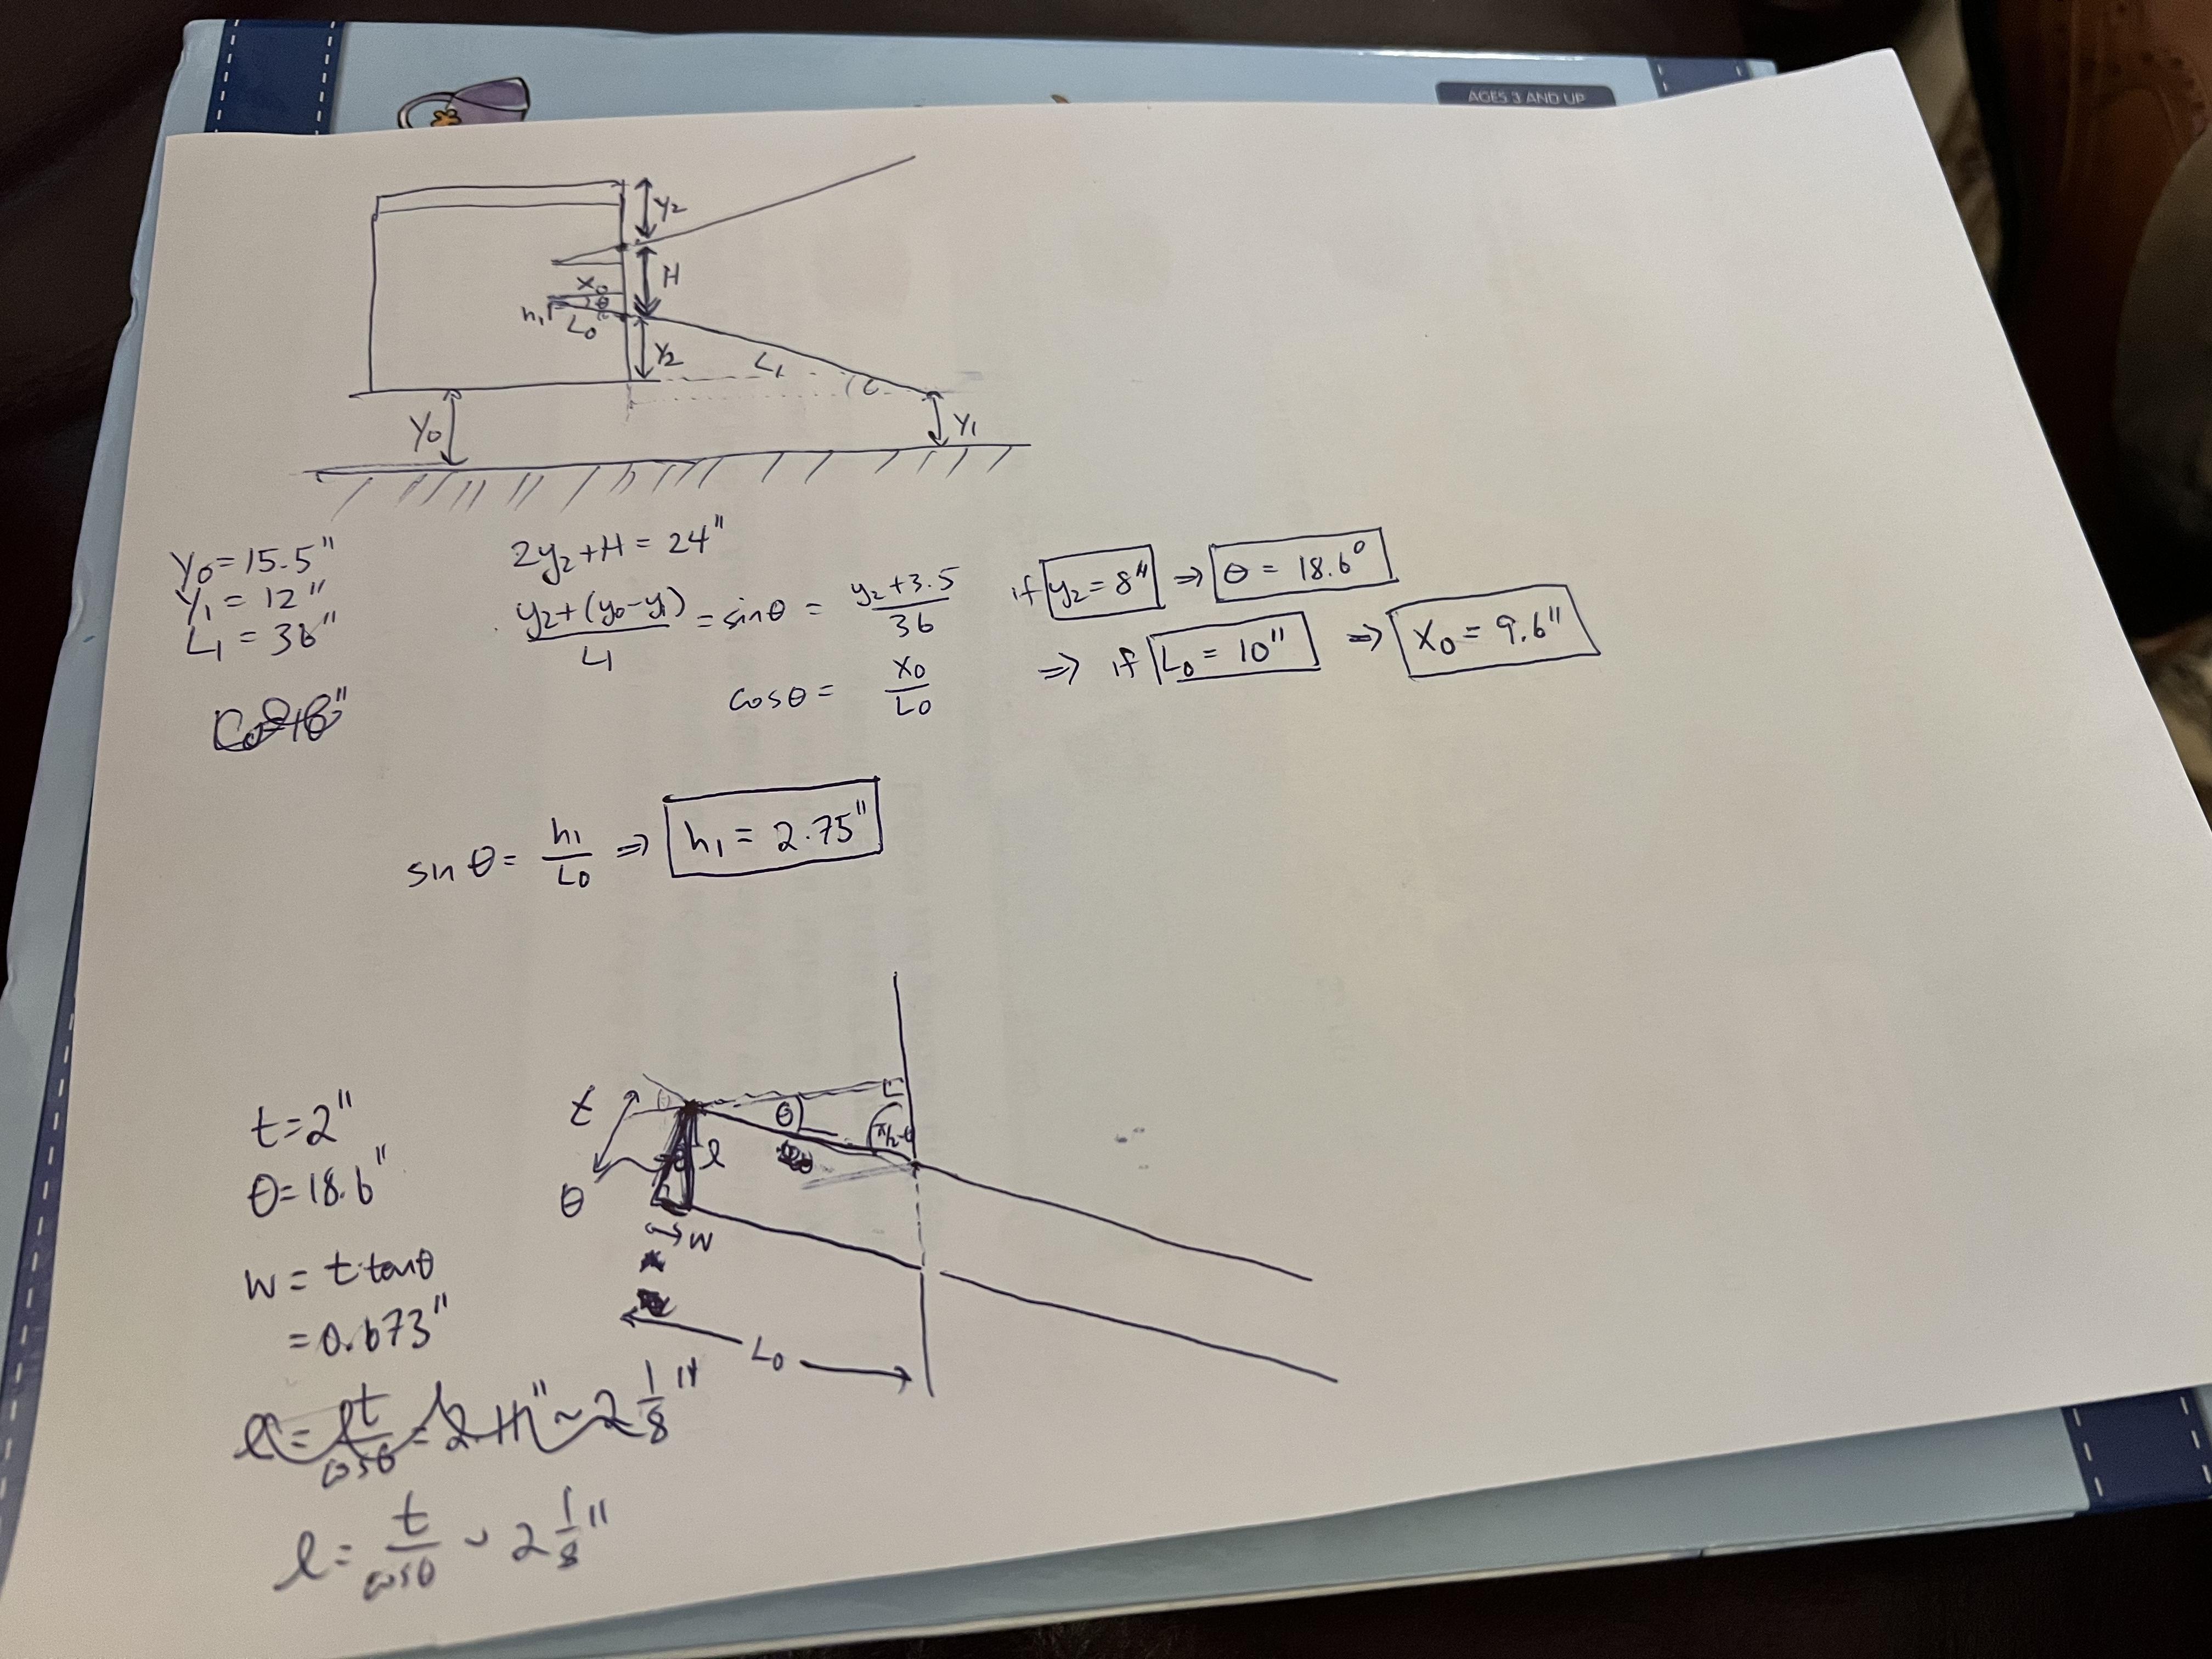 AGES 3 AND UP
Y2
H
X0
θ
h1
L0
Y2
L1
Y0
Y1
Y0 = 15.5"
Y1 = 12"
L1 = 36"
2y2 + H = 24"
y2 + (y0 - y1) / L1 = sin θ = y2 + 3.5 / 36
if y2 = 8" ⇒ θ = 18.6°
cos θ = X0 / L0
⇒ if L0 = 10" ⇒ X0 = 9.6"
sin θ = h1 / L0 ⇒ h1 = 2.75"
t = 2"
θ = 18.6"
w = t tan θ
= 0.673"
l = t / cos θ = 2.11" ~ 2 1/8"
l = t / cos θ ~ 2 1/8"
t
θ
π/2-θ
l
θ
w
L0